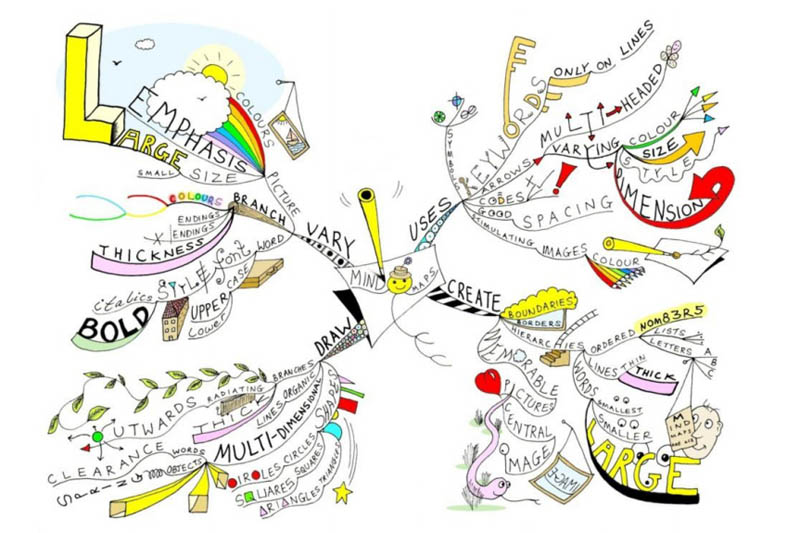 MIND
MAPS
VARY
PICTURE
EMPHASIS
COLOURS
LARGE
SMALL SIZE
BRANCH
COLOURS
ENDINGS
ENDINGS
THICKNESS
WORD
font
STYLE
italics
BOLD
CASE
UPPER
Lower
USES
SYMBOLS
KEYWORDS
ONLY ON LINES
ARROWS
MULTI-HEADED
VARYING
COLOUR
SIZE
STYLE
DIMENSION
CODES
GOOD SPACING
STIMULATING IMAGES
COLOUR
CREATE
BOUNDARIES
BORDERS
HIERARCHIES
ORDERED
NUM83R5
LISTS
LETTERS
A
B
C
LINES
THIN
THICK
WORDS
SMALLEST
SMALLER
LARGE
MIND
MAPS
MEMORABLE
PICTURES
CENTRAL
IMAGE
IMAGE
DRAW
BRANCHES
RADIATING
OUTWARDS
LINES ORGANIC
THICK
MULTI-DIMENSIONAL
WORDS
CLEARANCE
OBJECTS
SPRING
SHAPES
CIRCLES CIRCLES
SQUARES SQUARES
TRIANGLES TRIANGLES